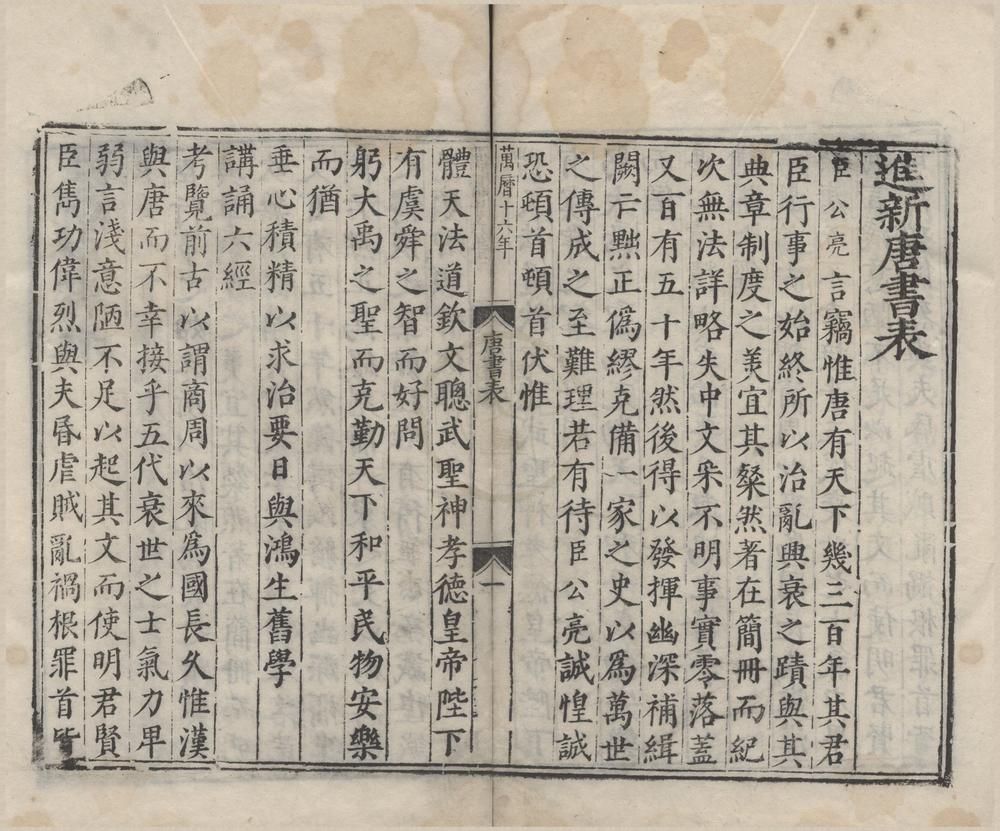 進新唐書表
臣公亮言竊惟唐有天下幾三百年其君
臣行事之始終所以治亂興衰之蹟與其
典章制度之美宜其粲然著在簡冊而紀
次無法詳略失中文采不明事實零落蓋
又百有五十年然後得以發揮幽深補緝
闕亡黜正僞繆克備一家之史以爲萬世
之傳成之至難理若有待臣公亮誠惶誠
恐頓首頓首伏惟
萬曆十六年
唐書表
一
體天法道欽文聰武聖神孝德皇帝陛下
有虞舜之智而好問
躬大禹之聖而克勤天下和平民物安樂
而猶
垂心積精以求治要日與鴻生舊學
講誦六經
考覽前古以謂商周以來爲國長久惟漢
與唐而不幸接乎五代衰世之士氣力卑
弱言淺意陋不足以起其文而使明君賢
臣雋功偉烈與夫昬虐賊亂禍根罪首皆